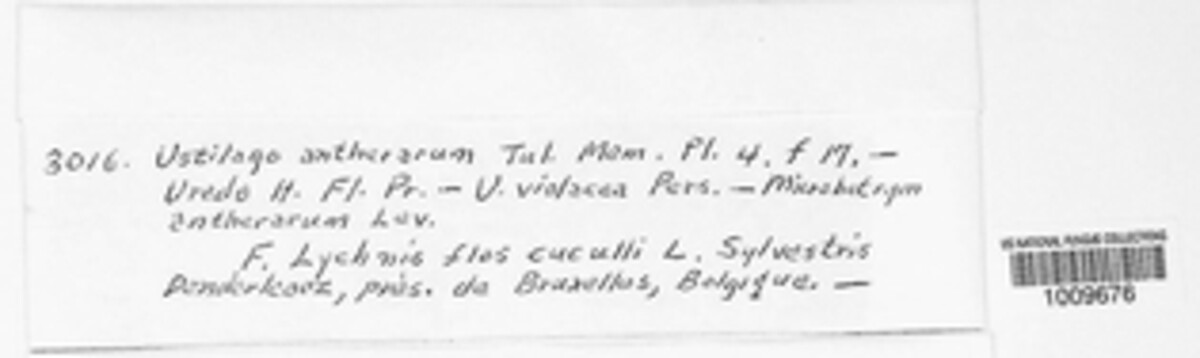 3016. Ustilago antherarum Tul. Mem. Pl. 4. f 17. —
Uredo H. Fl. Pr. — U. violacea Pers. — Microbotryum
antherarum Lev.
F. Lychnis flos cuculli L. Sylvestris
près. de Bruxelles, Belgique. —
US NATIONAL FUNGUS COLLECTIONS
1009676